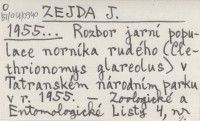 ZEJDA J.
1955... Rozbor jarní popu-
lace norníka rudého (Cle-
thrionomys glareolus) v
Tatranském národním parku
v r. 1955. — Zoologické a
Entomologické Listy 4, no